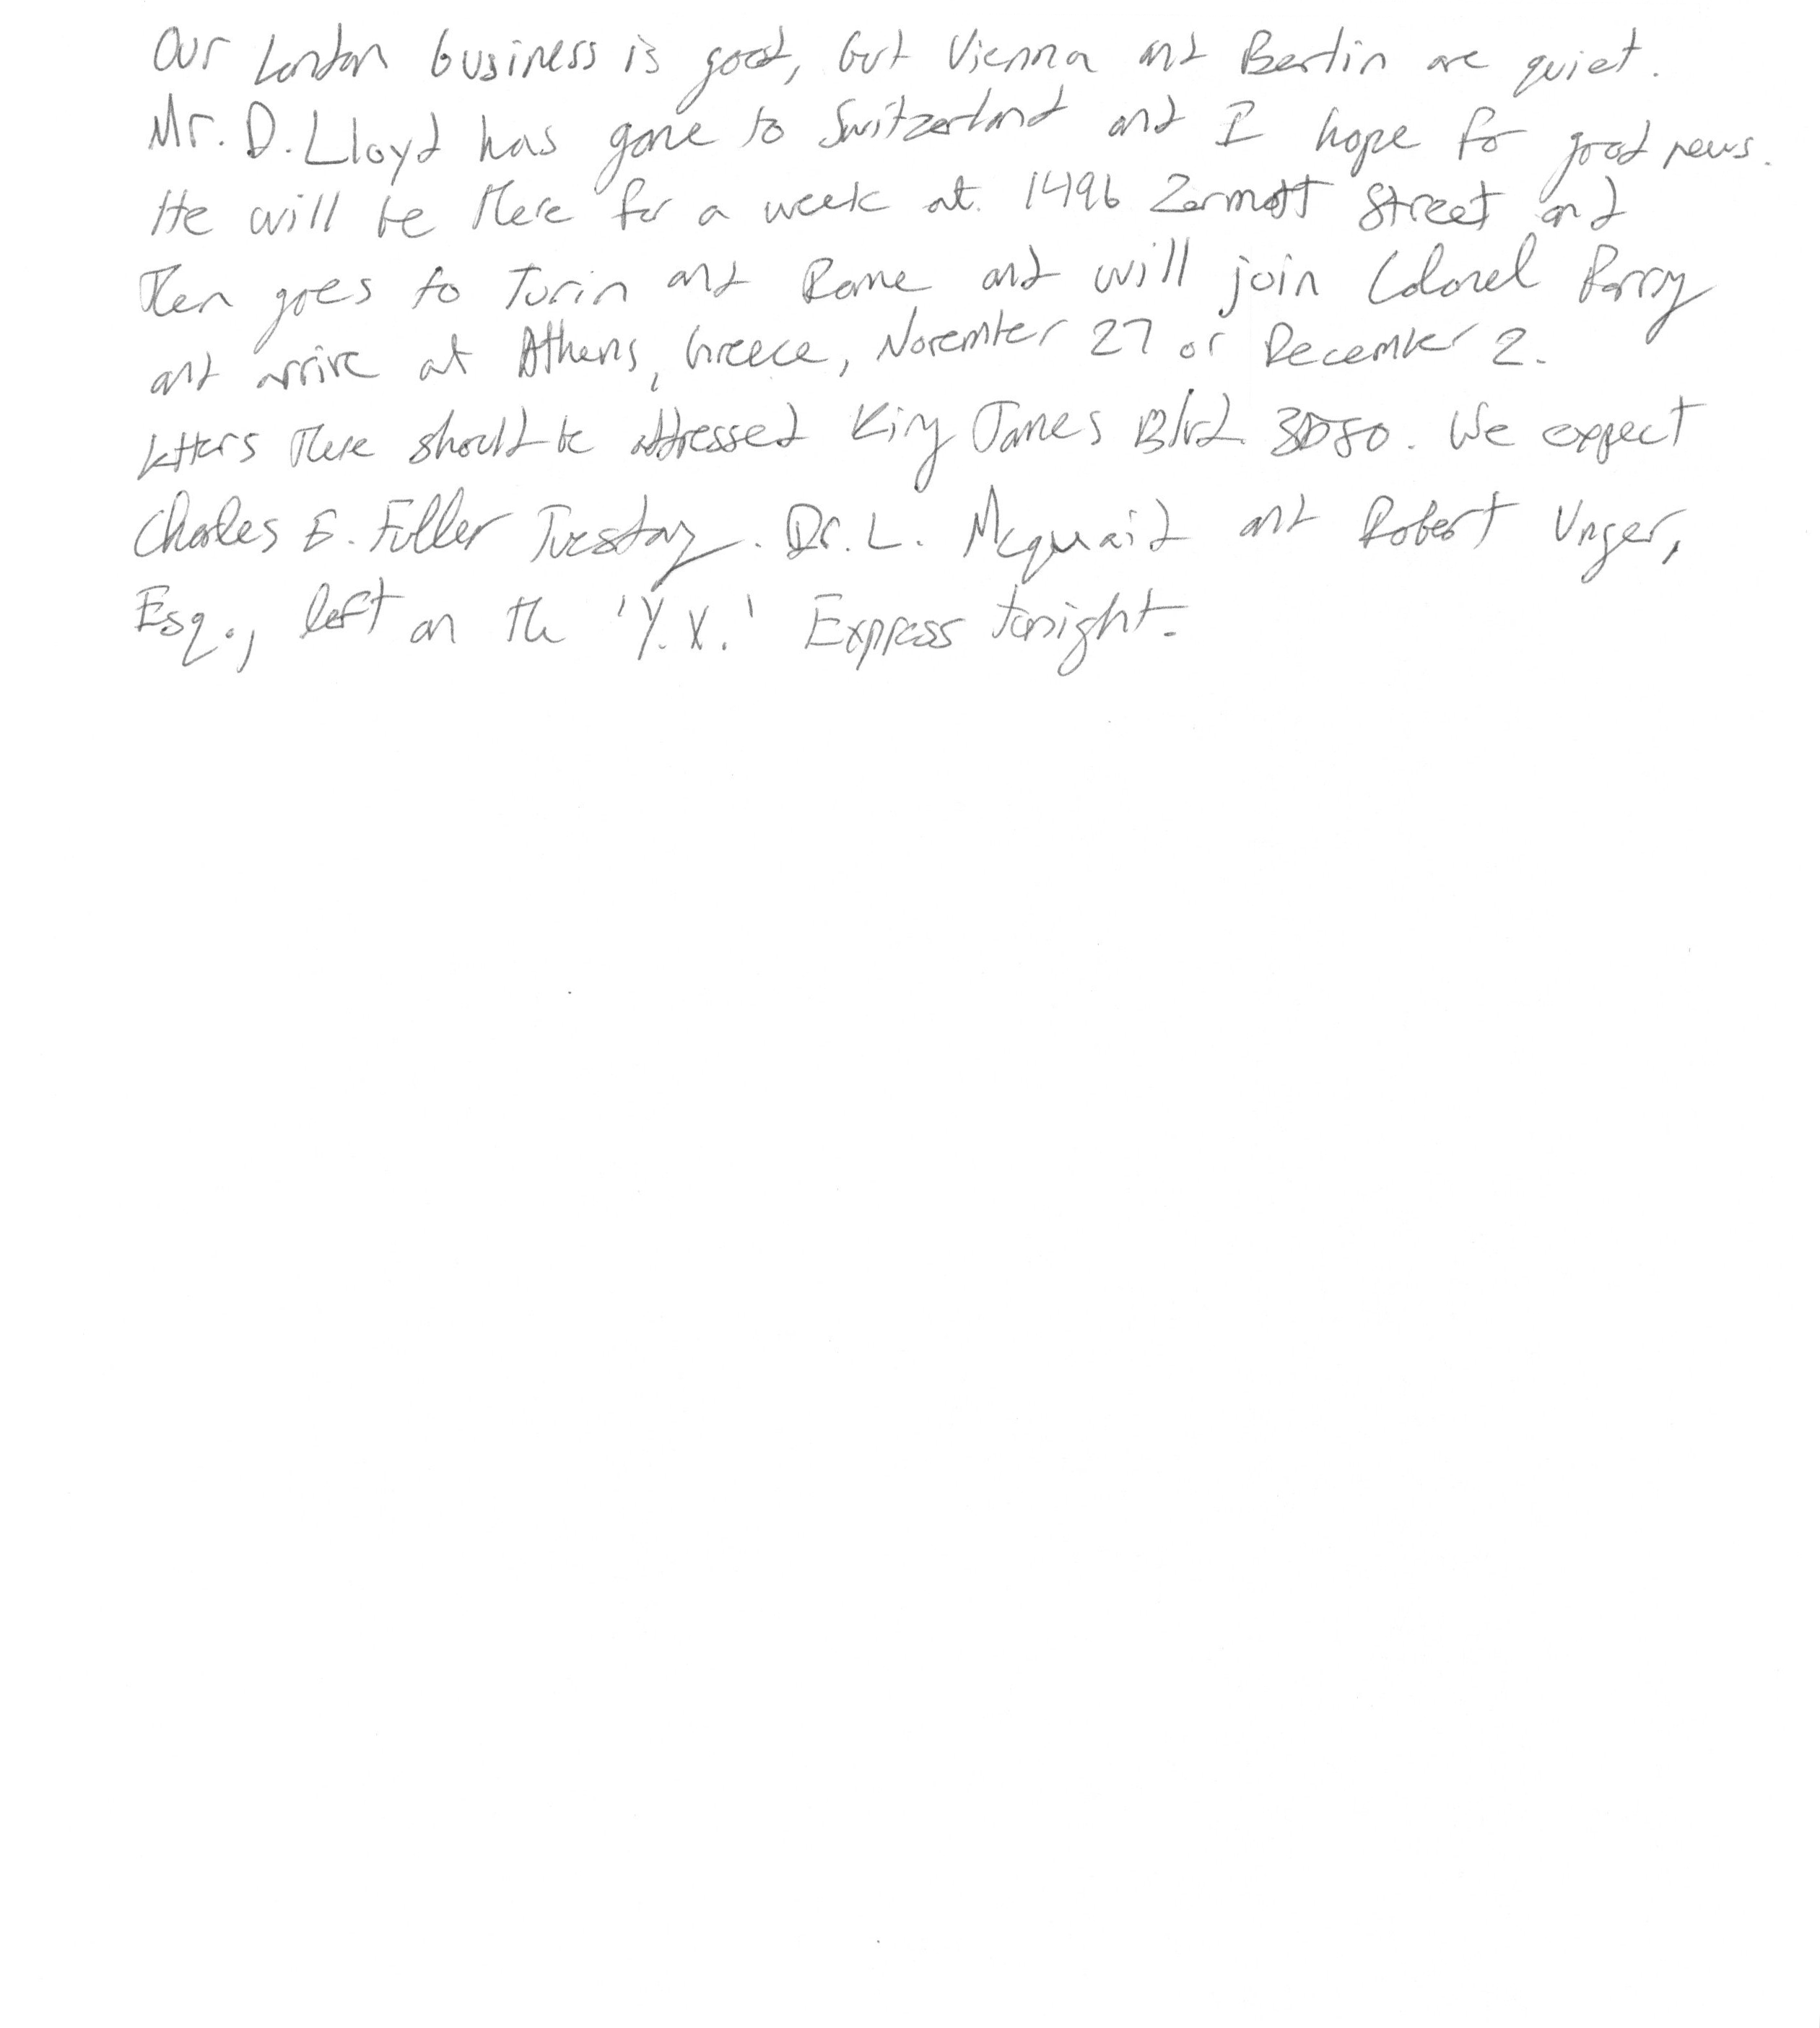 Our London business is good, but Vienna and Berlin are quiet.
Mr. D. Lloyd has gone to Switzerland and I hope for good news.
He will be there for a week at. 1496 Zermott Street and
then goes to Turin and Rome and will join Colonel Parry
and arrive at Athens, Greece, November 27 or December 2.
Letters there should be addressed King James Blvd. 3080. We expect
Charles E. Fuller Tuesday. Dr. L. Mcquaid and Robert Unger,
Esq., left on the 'Y.X.' Express tonight.